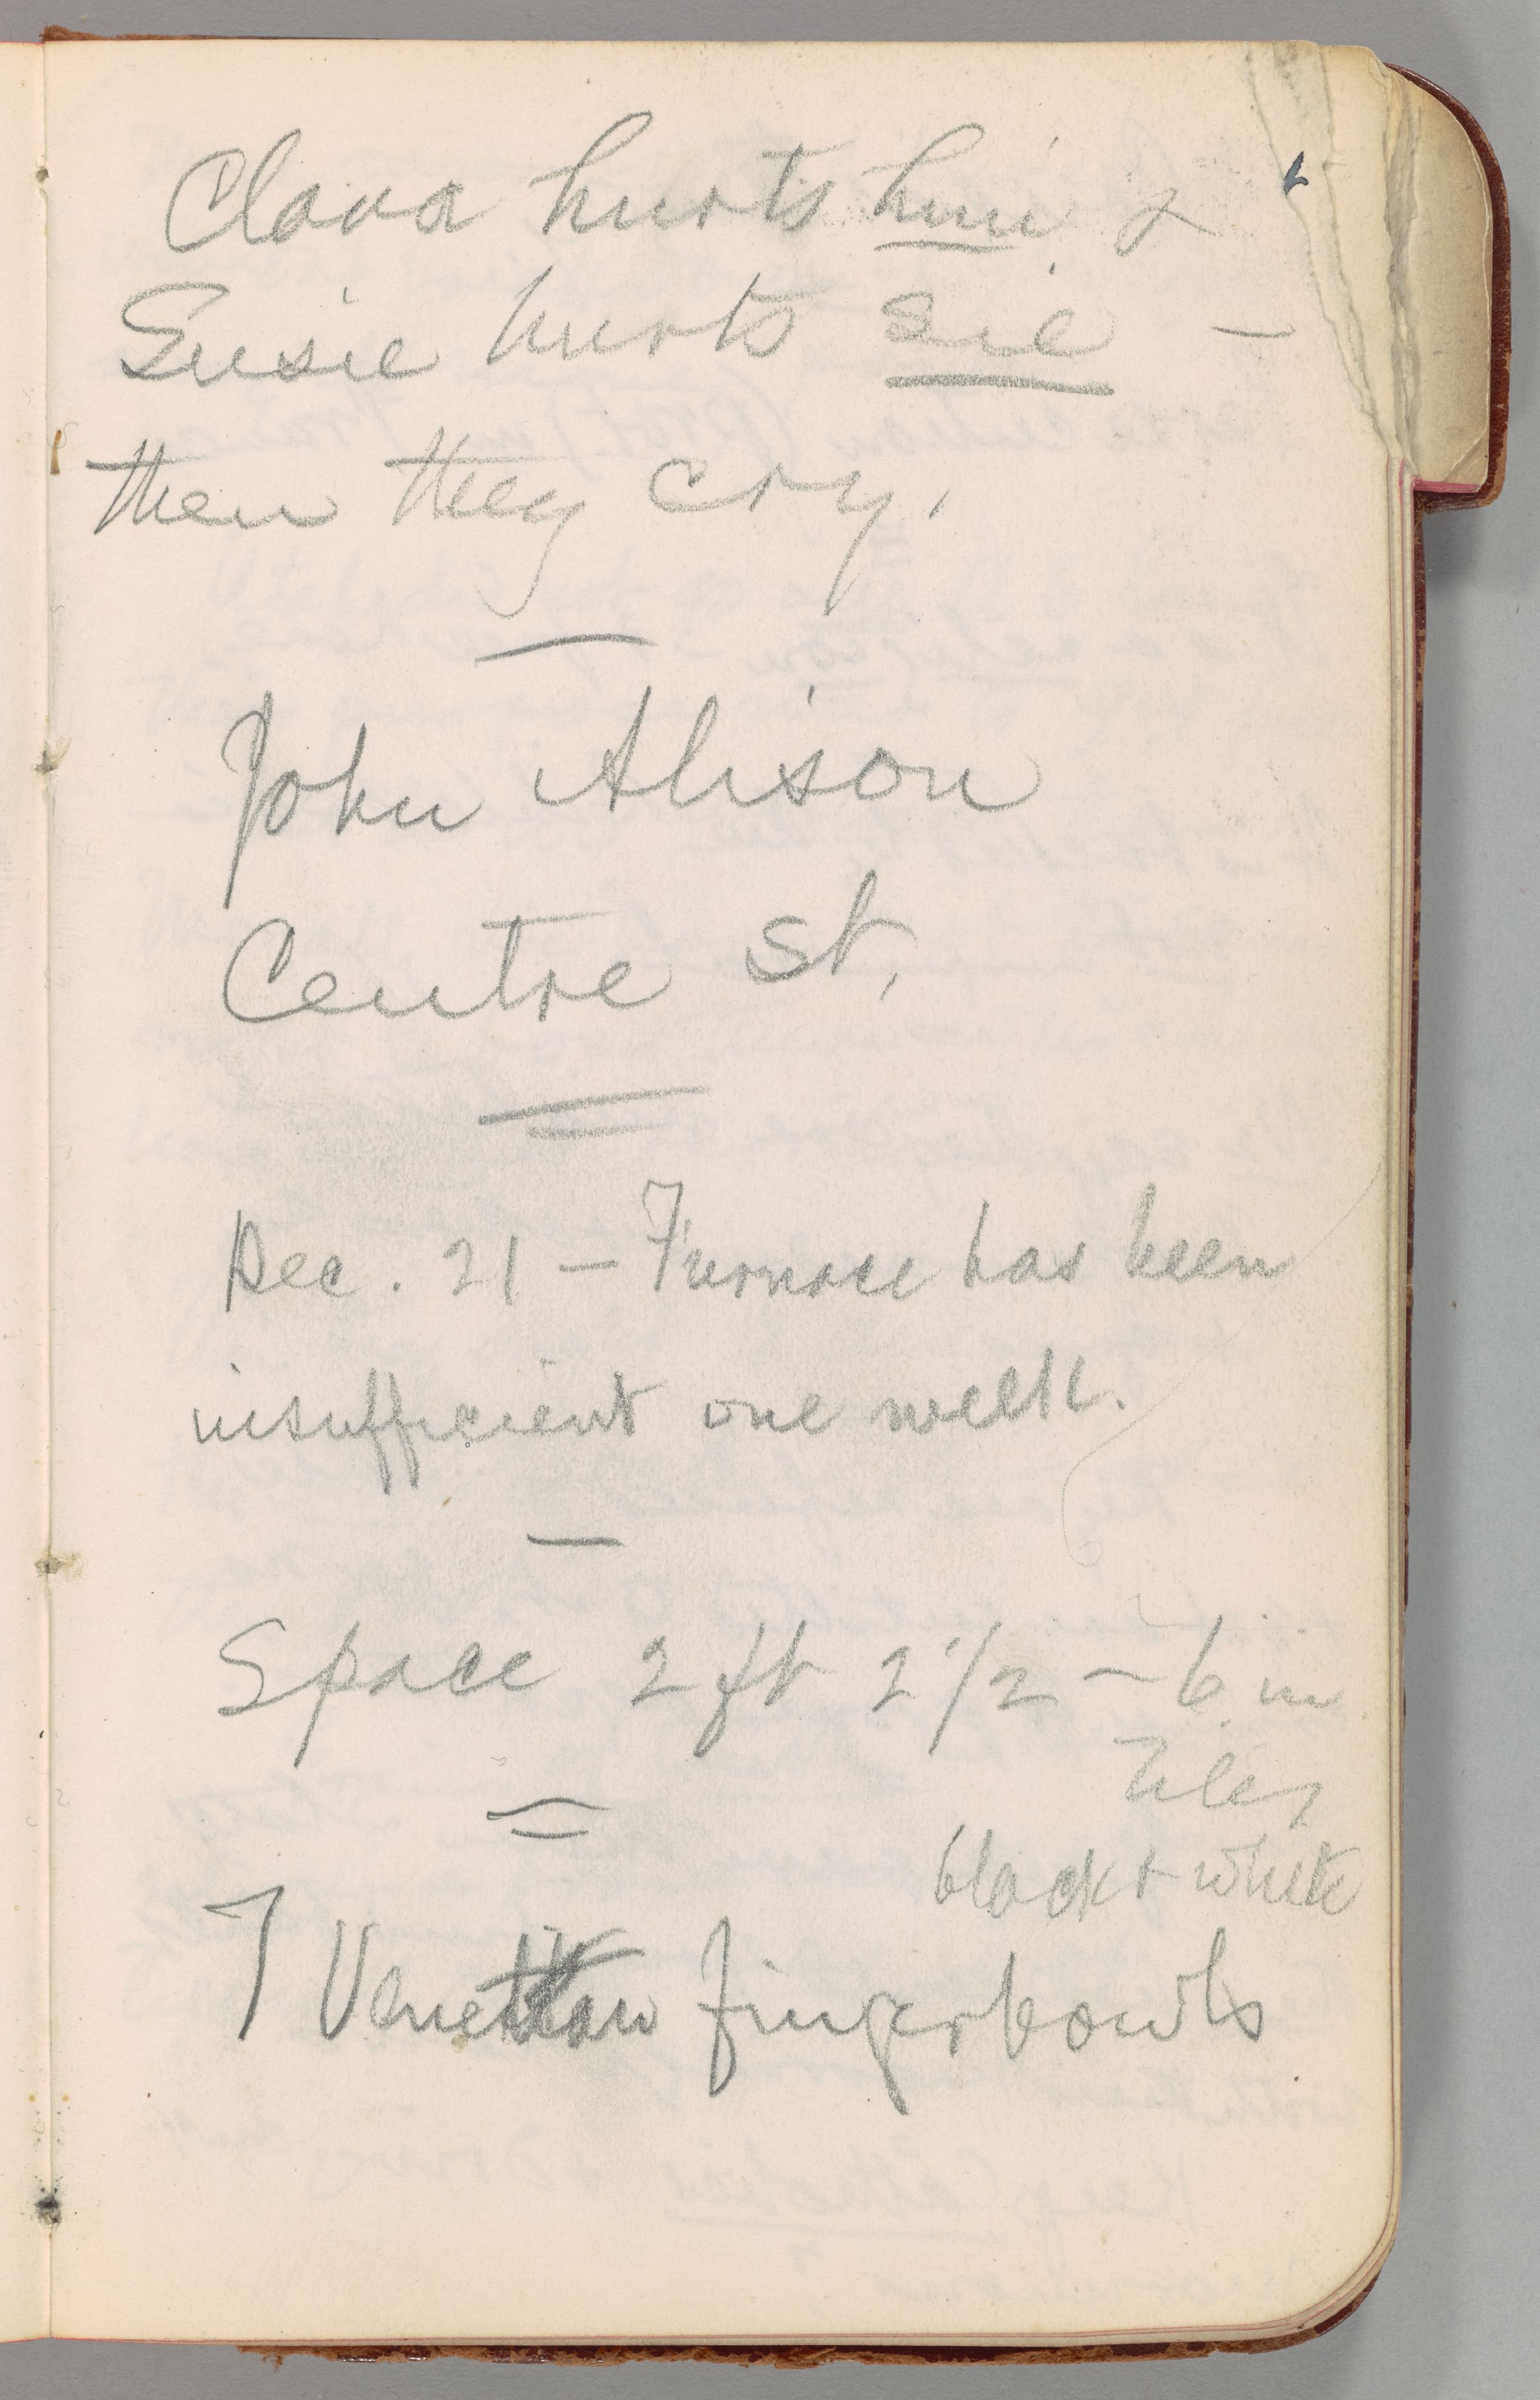 Clara hurts him &
Susie hurts sie —
then they cry.
John Alison
Centre St.
Dec. 21 — Furnace has been
insufficient one week.
Space 2 ft 2 1/2 — 6 in
tiles
black & white
7 Venetian fingerbowls